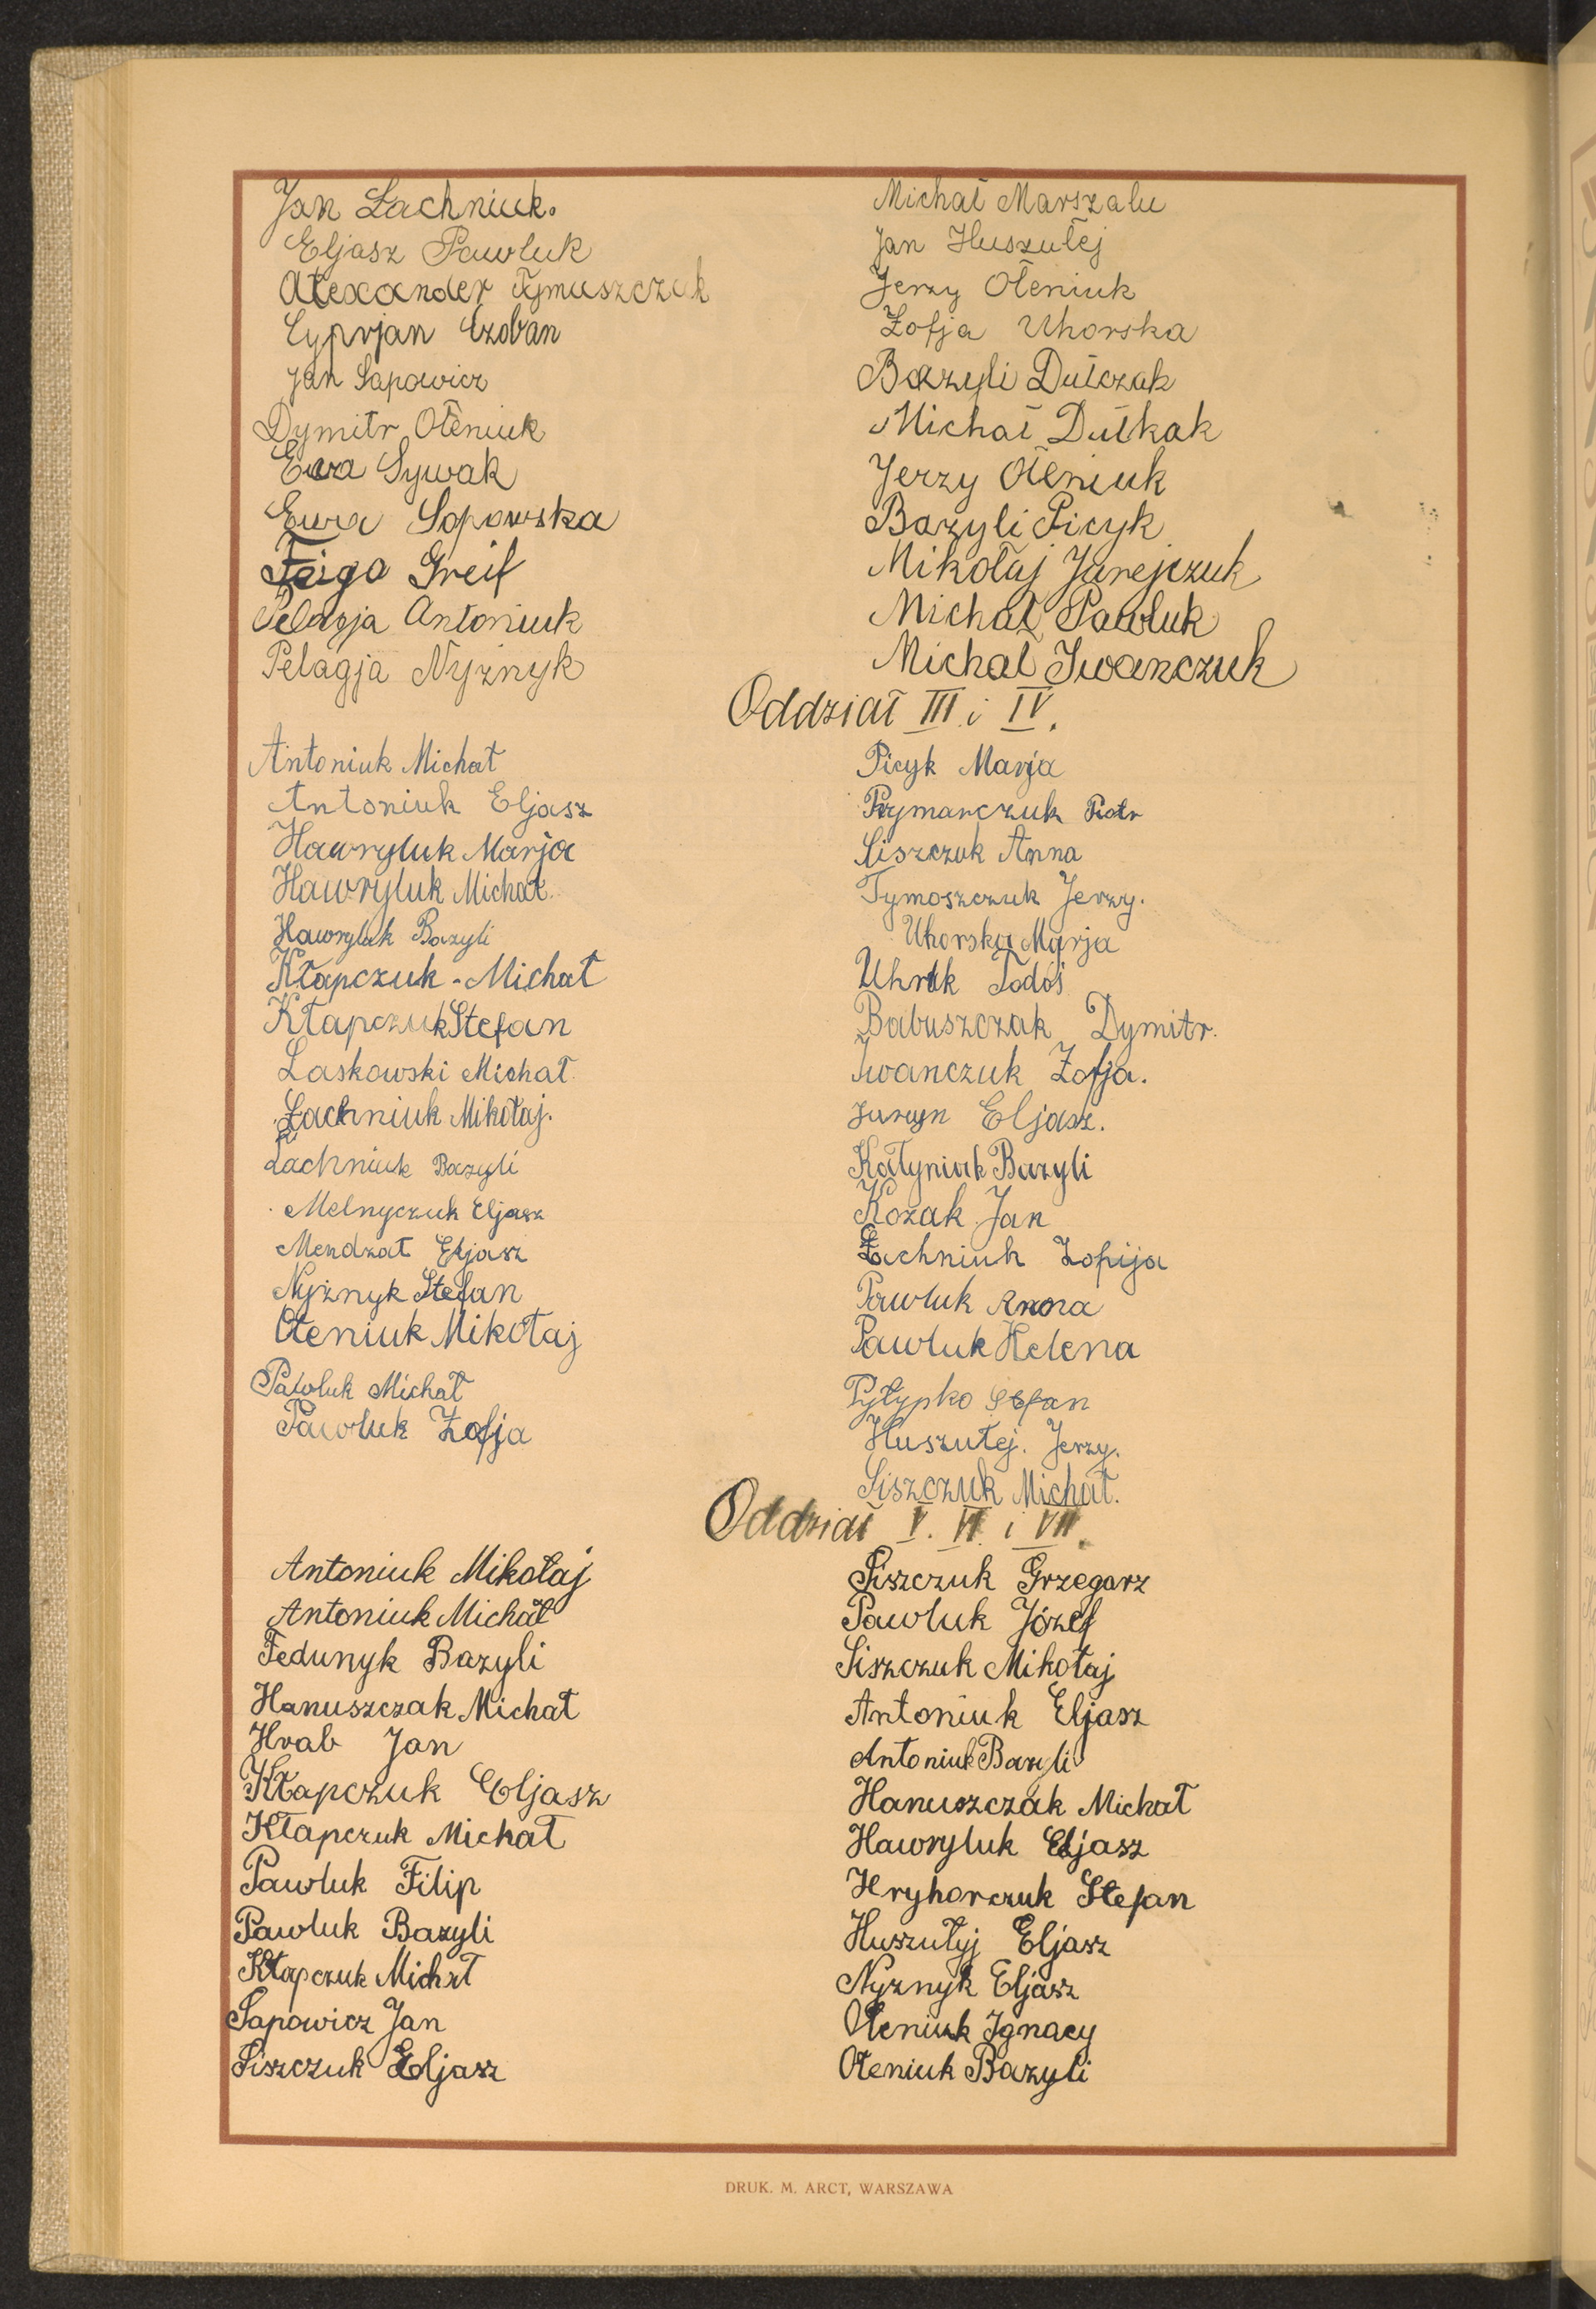 Jan Lachniuk.
Eljasz Pawluk
Alexander Tymuszczuk
Cyprjan Czoban
Jan Sapowicz
Dymitr Ołeniuk
Ewa Sywak
Ewa Sopowska
Feiga Greif
Pelagja Antoniuk
Pelagja Nyżnyk
Michał Marszalu
Jan Huszułej
Jerzy Ołeniuk
Zofja Uhorska
Bazyli Dutczak
Michał Dutkak
Jerzy Ołeniuk
Bazyli Picyk
Mikołaj Jarejczuk
Michał Pawluk
Michał Iwanczuk
Oddział III i IV.
Antoniuk Michał
Antoniuk Eljasz
Hawryluk Marja
Hawryluk Michał.
Hawryluk Bazyli
Kłapczuk - Michał
Kłapczuk Stefan
Laskowski Michał.
Łachniuk Mikołaj.
Łachniuk Bazyli
Melnyczuk Eljasz
Mendzat Eljasz
Nyżnyk Stefan
Ołeniuk Mikołaj
Pawluk Michał
Pawluk Zofja
Picyk Marja
Prymarczuk Piotr
Siszczuk Anna
Tymoszczuk Jerzy.
Uhorska Marja
Uhrik Todoś
Babuszczak Dymitr.
Iwanczuk Zofja.
Juryn Eljasz.
Kałyniak Bazyli
Kozak Jan
Łachniuk Zofija
Pawluk Anna
Pawluk Helena
Pyłypko Stefan
Huszułej. Jerzy.
Siszczuk Michał.
Oddział V. VI i VII.
Antoniuk Mikołaj
Antoniuk Michał
Fedunyk Bazyli
Hanuszczak Michał
Hrab Jan
Kłapczuk Eljasz
Kłapczuk Michał
Pawluk Filip
Pawluk Bazyli
Kłapczuk Michał
Sapowicz Jan
Siszczuk Eljasz
Siszczuk Grzegorz
Pawluk Józef
Siszczuk Mikołaj
Antoniuk Eljasz
Antoniuk Bazyli
Hanuszczak Michał
Hawryluk Eljasz
Hryhorczuk Stefan
Huszułyj Eljasz
Nyżnyk Eljasz
Ołeniuk Ignacy
Ołeniuk Bazyli
DRUK. M. ARCT, WARSZAWA